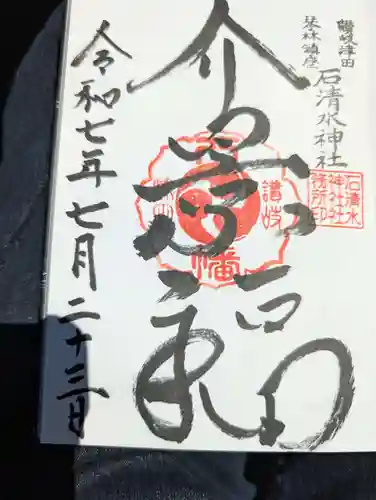 讃岐津田
琴林鎮座
石清水神社
介景福
石清水
神社社
務所印
讃岐
八幡
令和七年七月二十三日